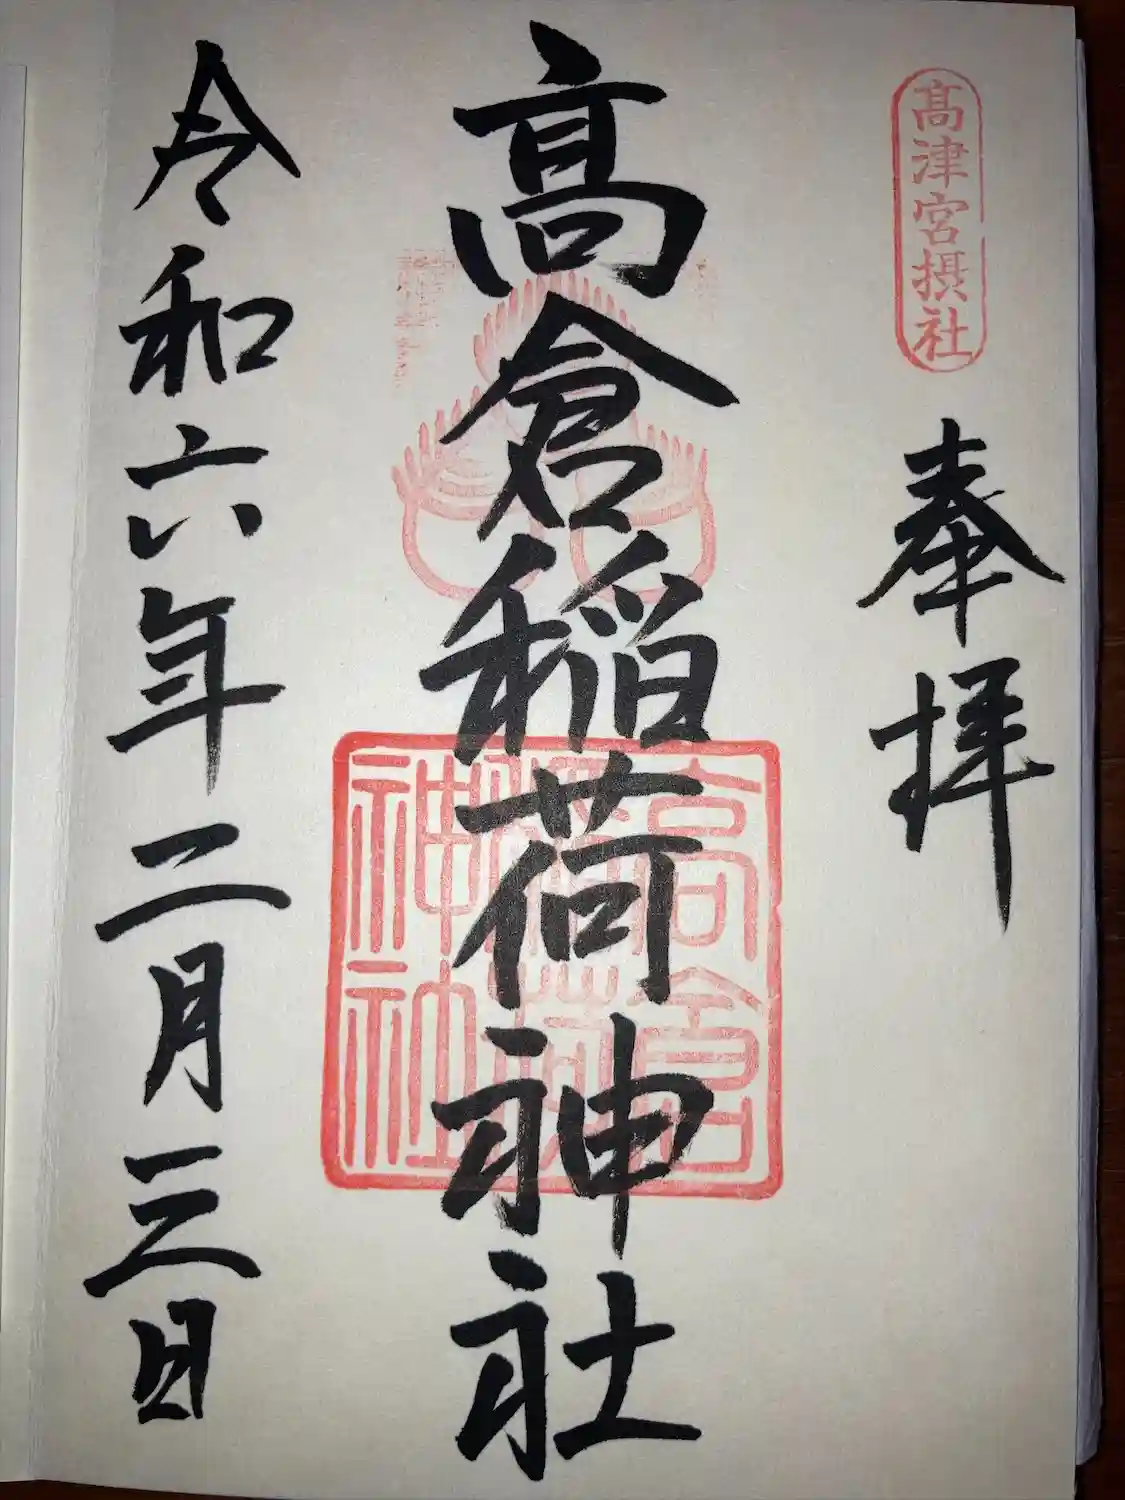 髙津宮摂社
奉拝
髙倉稲荷神社
高倉稲荷神社
令和六年二月三日